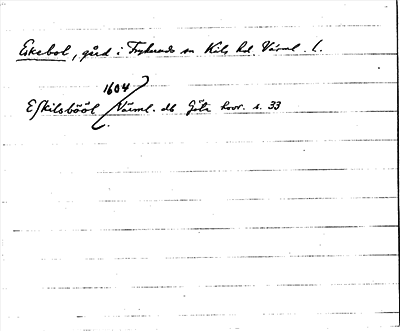 Eskebol, gård i Frykerud sn Kils hd. Värml. l.
1604
Eskilsbööl Värml. db Göta hovr. s. 33